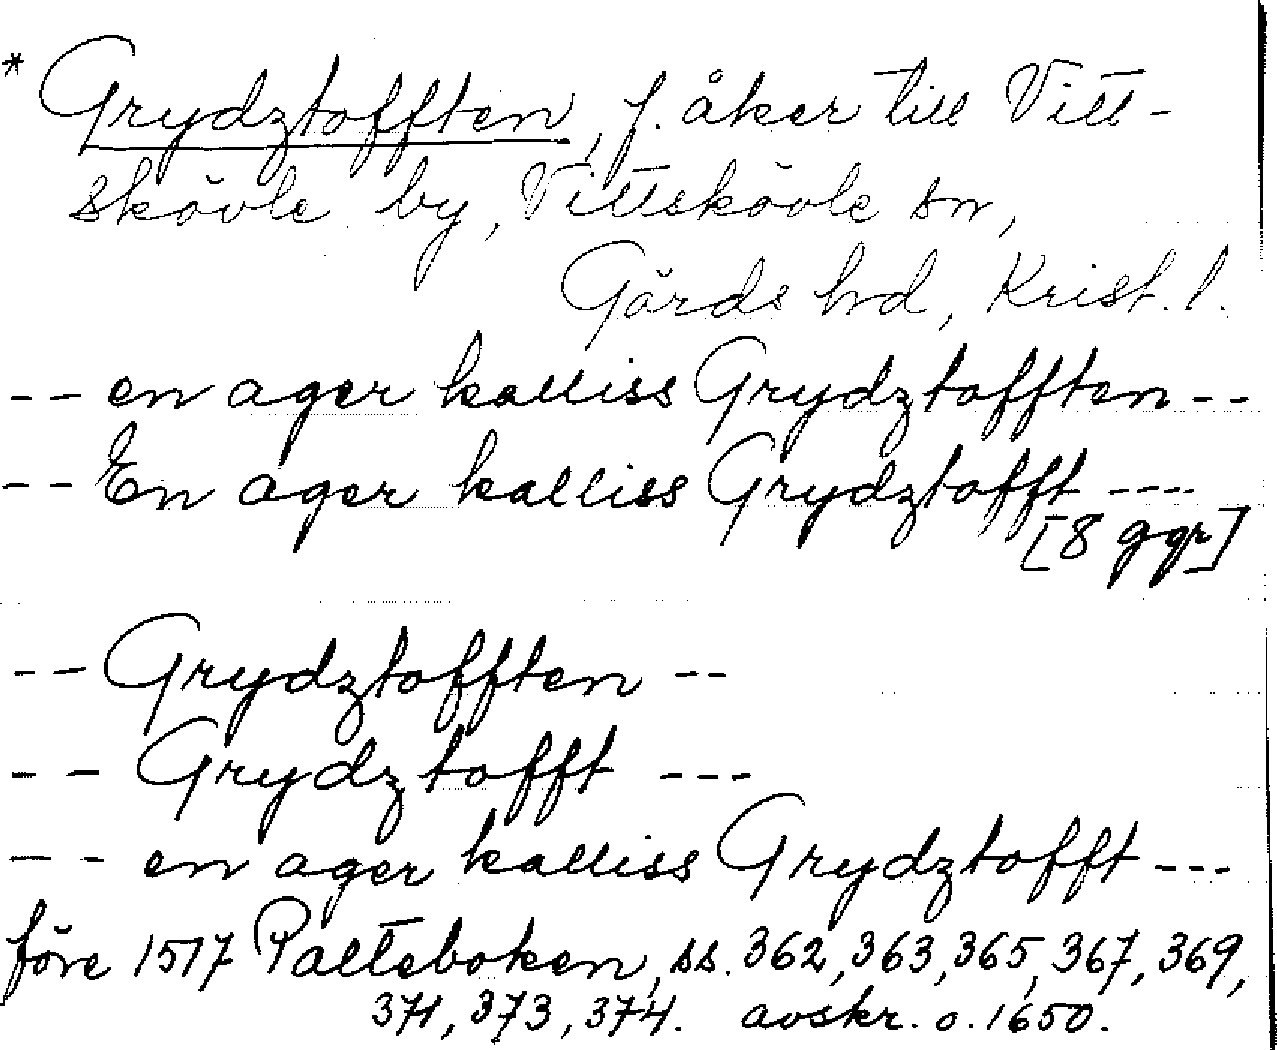 * Grydztofften, f. åker till Vitt-
skövle by, Vittskövle sn,
Gärds hd, Krist. l.
-- en ager kalliss Grydztofften --
-- En ager kalliss Grydztofft ----
[8 ggr]
-- Grydztofften --
-- Grydztofft ---
-- en ager kalliss Grydztofft ---
före 1517 Palteboken, ss. 362, 363, 365, 367, 369,
371, 373, 374. avskr. o. 1650.